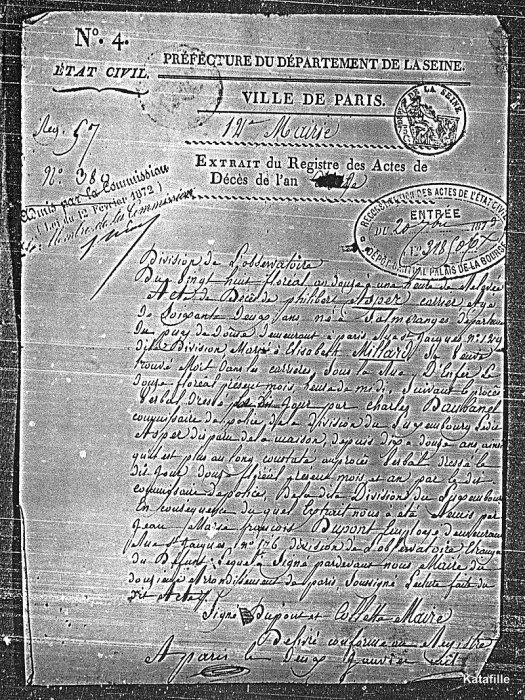 N.º 4.
ÉTAT CIVIL.
PRÉFECTURE DU DÉPARTEMENT DE LA SEINE.
VILLE DE PARIS.
DE LA SEINE
12e Mairie
Reg. 57
N.º 380
EXTRAIT du Registre des Actes de
Décès de l'an
Admis par la Commission
(Loi du 12 Février 1872)
Membre de la Commission
RECONSTITUTION DES ACTES DE L'ÉTAT CIVIL
ENTRÉE
DU 20
DÉPARTEMENTAL PALAIS DE LA BOURSE
Division de L'observatoire
Du vingt huit floreal an douze à une heure de Relevée
Acte de Décès de philibert Asper carrier age
De Soixante Deux ans né à Salmeranges département
Du puy de dome demeurant à paris rue St Jacques N.º 129
dite Division Marié à Elisabeth Millard Se
trouvé Mort Dans les carrières Sous la Rue D'Enfer Le
Douze floreal présent mois heure de midi, Suivant le procès
Verbal Dressé Dit Jour par charles Daubanel
commissaire de police de la Division du Luxembourg Ledit
Asper disparu de sa maison depuis dix à douze ans ainsi
qu'il est plus au long constaté au procès Verbal dressé le
dit Jour douze floreal présent mois et an par le dit
commissaire de polices De la dite Division du Luxembourg
En consequence du quel L'extrait nous a été Remis par
Jean Marie françois Dupont Employé demeurant
Rue St Jacques N.º 176, division de L'observatoire
du Deffunt, Lequel a Signé pardevant nous Maire du
douzieme arrondissement de paris, soussigné Lecture faite du
Dit Acte
Signé Dupont et Collette Maire
Délivré conforme au Registre
A paris le Deux Janvier
Katafille